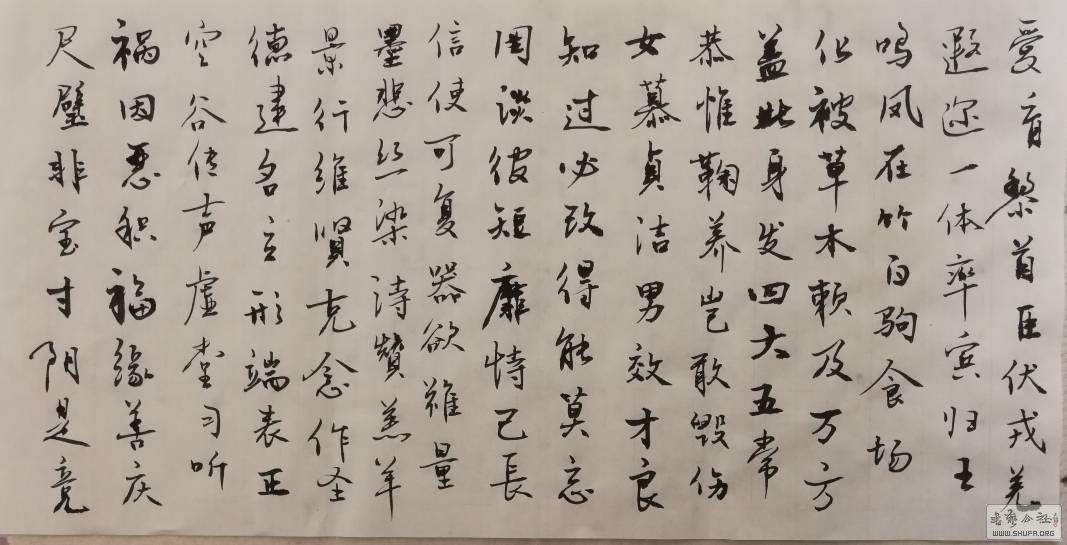 爱育黎首臣伏戎羌
遐迩一体率宾归王
鸣凤在竹白驹食场
化被草木赖及万方
盖此身发四大五常
恭惟鞠养岂敢毁伤
女慕贞洁男效才良
知过必改得能莫忘
罔谈彼短靡恃己长
信使可复器欲难量
墨悲丝染诗赞羔羊
景行维贤克念作圣
德建名立形端表正
空谷传声虚堂习听
祸因恶积福缘善庆
尺璧非宝寸阴是竞
书艺公社
WWW.SHUFA.ORG